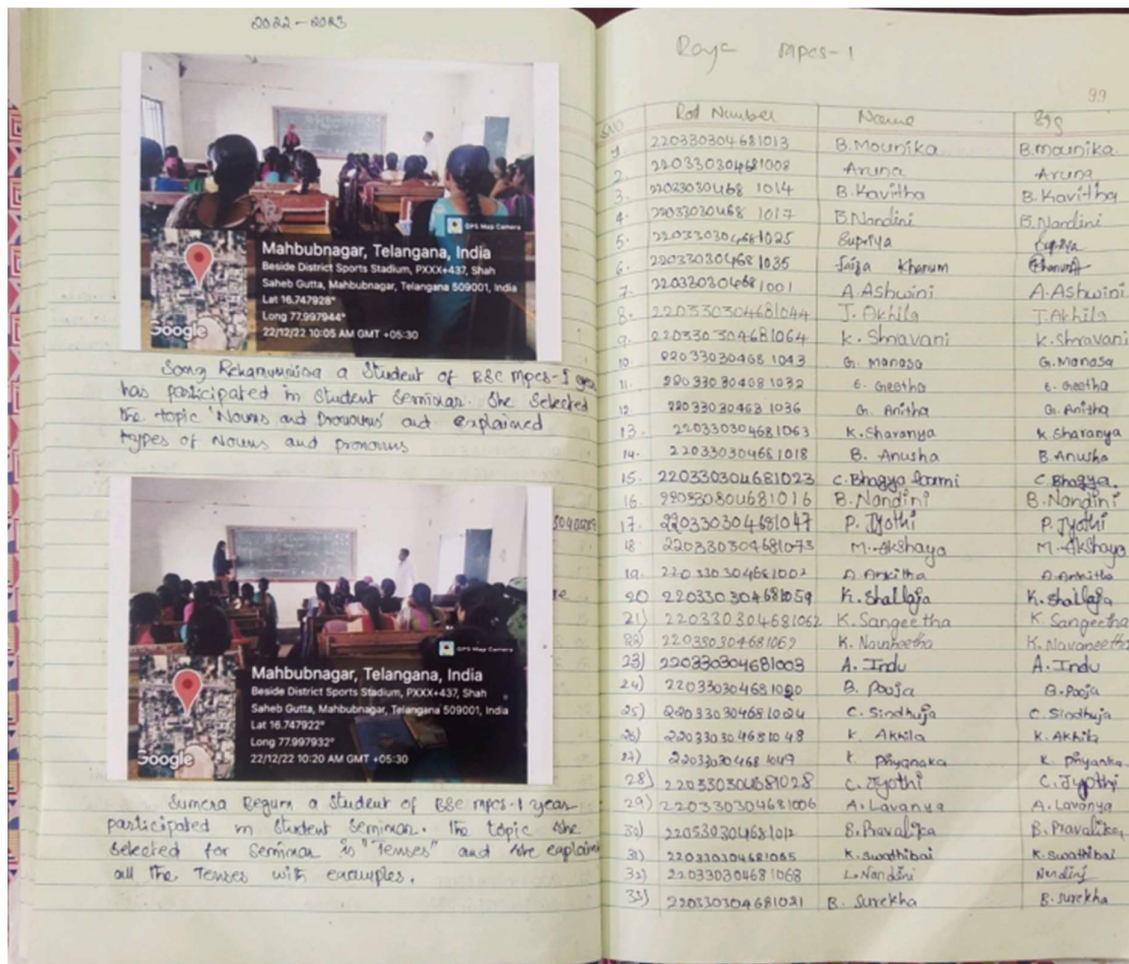 2022-2023
GPS Map Camera
Mahbubnagar, Telangana, India
Beside District Sports Stadium, PXXX+437, Shah
Saheb Gutta, Mahbubnagar, Telangana 509001, India
Lat 16.747928°
Long 77.997944°
22/12/22 10:05 AM GMT +05:30
Google
a Student of BSC MPCS-I year
has participated in Student Seminar. She Selected
the topic 'Nouns and Pronouns' and explained
types of Nouns and pronouns
GPS Map Camera
Mahbubnagar, Telangana, India
Beside District Sports Stadium, PXXX+437, Shah
Saheb Gutta, Mahbubnagar, Telangana 509001, India
Lat 16.747922°
Long 77.997932°
22/12/22 10:20 AM GMT +05:30
Google
Sumera Begum a Student of BSC MPCS-1 year
participated in Student Seminar. The topic she
Selected for Seminar is "Tenses" and she explain
all the Tenses with examples.
MPCS-1
99
S.NO Roll Number Name Sig
1. 220330304681013 B.Mounika B.mounika
2. 220330304681008 Aruna Aruna
3. 220330304681014 B.Kavitha B.Kavitha
4. 220330304681017 B.Nandini B.Nandini
5. 220330304681025 Supriya Supriya
6. 220330304681035 Faiza Khanum Khanum
7. 220330304681001 A.Ashwini A.Ashwini
8. 220330304681044 J.Akhila J.Akhila
9. 220330304681064 K.Shravani K.Shravani
10. 220330304681043 G.Manasa G.Manasa
11. 220330304681032 E.Geetha E.Geetha
12. 220330304681036 G.Anitha G.Anitha
13. 220330304681063 K.Sharanya K.Sharanya
14. 220330304681018 B.Anusha B.Anusha
15. 220330304681023 C.Bhagya laxmi C.Bhagya.
16. 220330304681016 B.Nandini B.Nandini
17. 220330304681047 P.Jyothi P.Jyothi
18. 220330304681073 M.Akshaya M.Akshaya
19. 220330304681002 A.Ankitha A.Ankitha
20 220330304681059 K.Shailaja K.Shailaja
21) 220330304681062 K.Sangeetha K.Sangeetha
22) 220330304681069 K. K.Navaneetha
23) 220330304681003 A.Indu A.Indu
24) 220330304681020 B.Pooja B.Pooja
25) 220330304681024 C.Sindhuja C.Sindhuja
26) 220330304681048 K.Akhila K.Akhila
27) 220330304681049 K. K.Priyanka
28) 220330304681028 C.Jyothi C.Jyothi
29) 220330304681006 A.Lavanya A.Lavanya
30) 220330304681012 B.Pravalika B.Pravalika
31) 220330304681065 K.Swathibai K.Swathibai
32) 220330304681068 L.Nandini Nandini
33) 220330304681021 B.Surekha B.Surekha